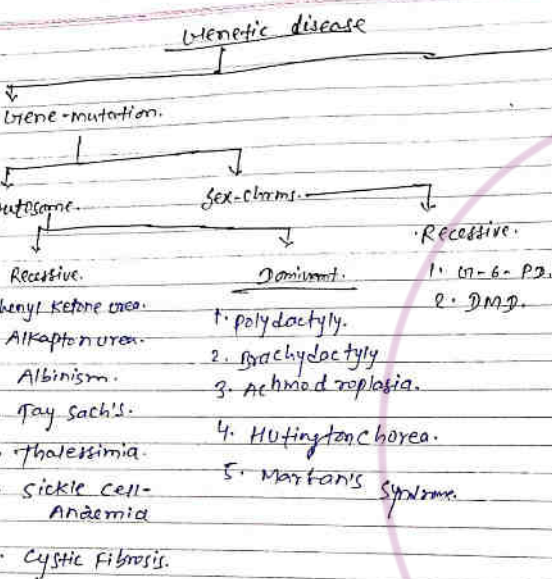 Genetic disease
Gene-mutation.
utosome.
Sex-chrms.
Recessive.
1. G-6-P.D.
2. DMD.
Recessive.
henyl Ketone urea.
Alkapton urea.
Albinism.
Tay Sach's.
Thalessimia.
Sickle Cell-
Anaemia
Cystic Fibrosis.
Dominant.
1. Polydactyly.
2. Brachydactyly
3. Achmodroplasia.
4. Hutington Chorea.
5. Marfan's Syndrome.